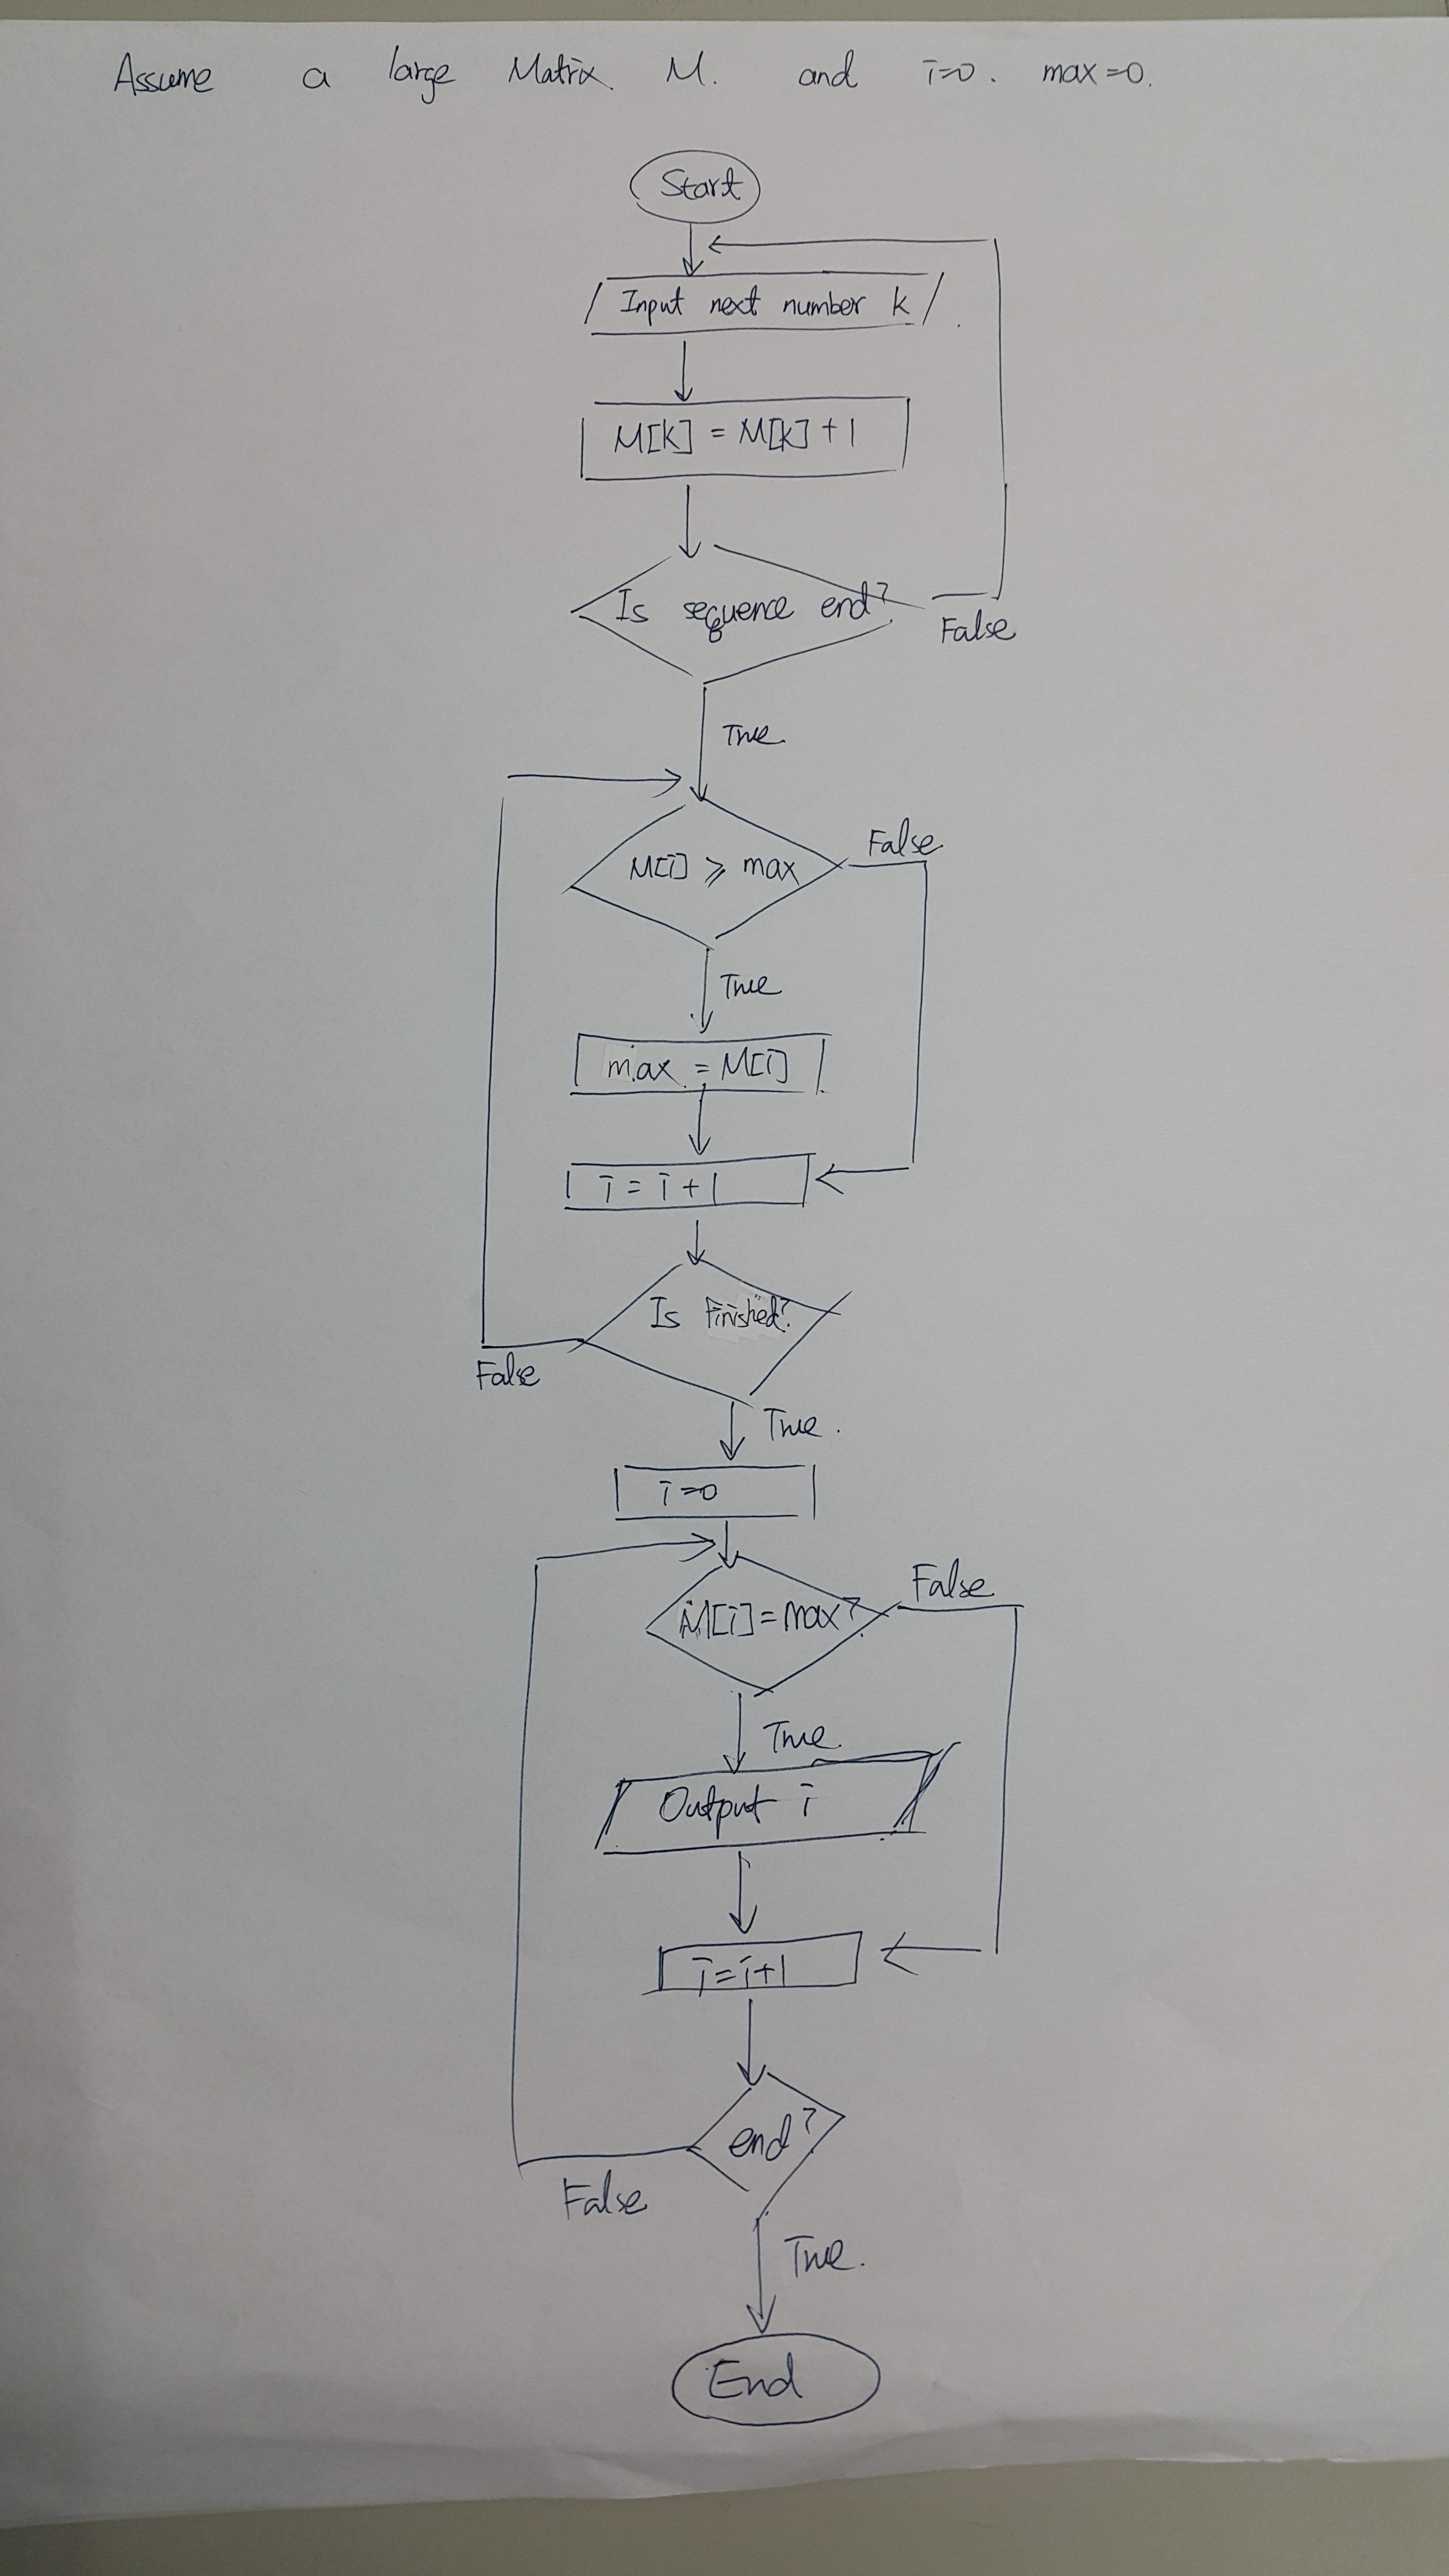 Assume a large Matrix M. and i=0. max=0.
Start
Input next number k
M[k] = M[k] + 1
Is sequence end?
False
True
M[i] ⩾ max
False
True
max = M[i]
i = i + 1
Is Finished?
False
True.
i=0
M[i]=max?
False
True
Output i
i=i+1
end?
False
True.
End